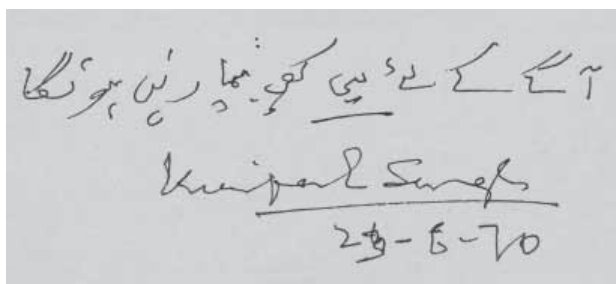 آگے کے لئے کوئی بیمار نہیں ہوئگا
Kirpal Singh
23-6-70